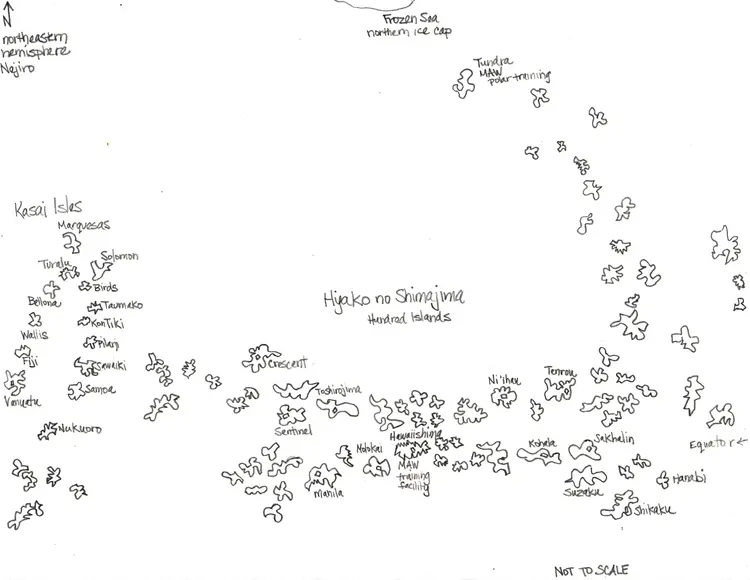 N
northeastern
hemisphere
Najiro
Frozen Sea
northern ice cap
Tundra
MAW
polar training
Kasai Isles
Marquesas
Solomon
Birds
Bellona
Taumako
KonTiki
Wallis
Fiji
Sawaiki
Samoa
Nukuoro
Hyako no Shimajima
Hundred Islands
Crescent
Toshirojima
Sentinel
Ni'ihau
Tenrou
Hawaiishima
MAW
training
facility
Molokai
Manila
Kohala
Sakhalin
Suzaku
Hanabi
Shikaku
Equator ←
NOT TO SCALE